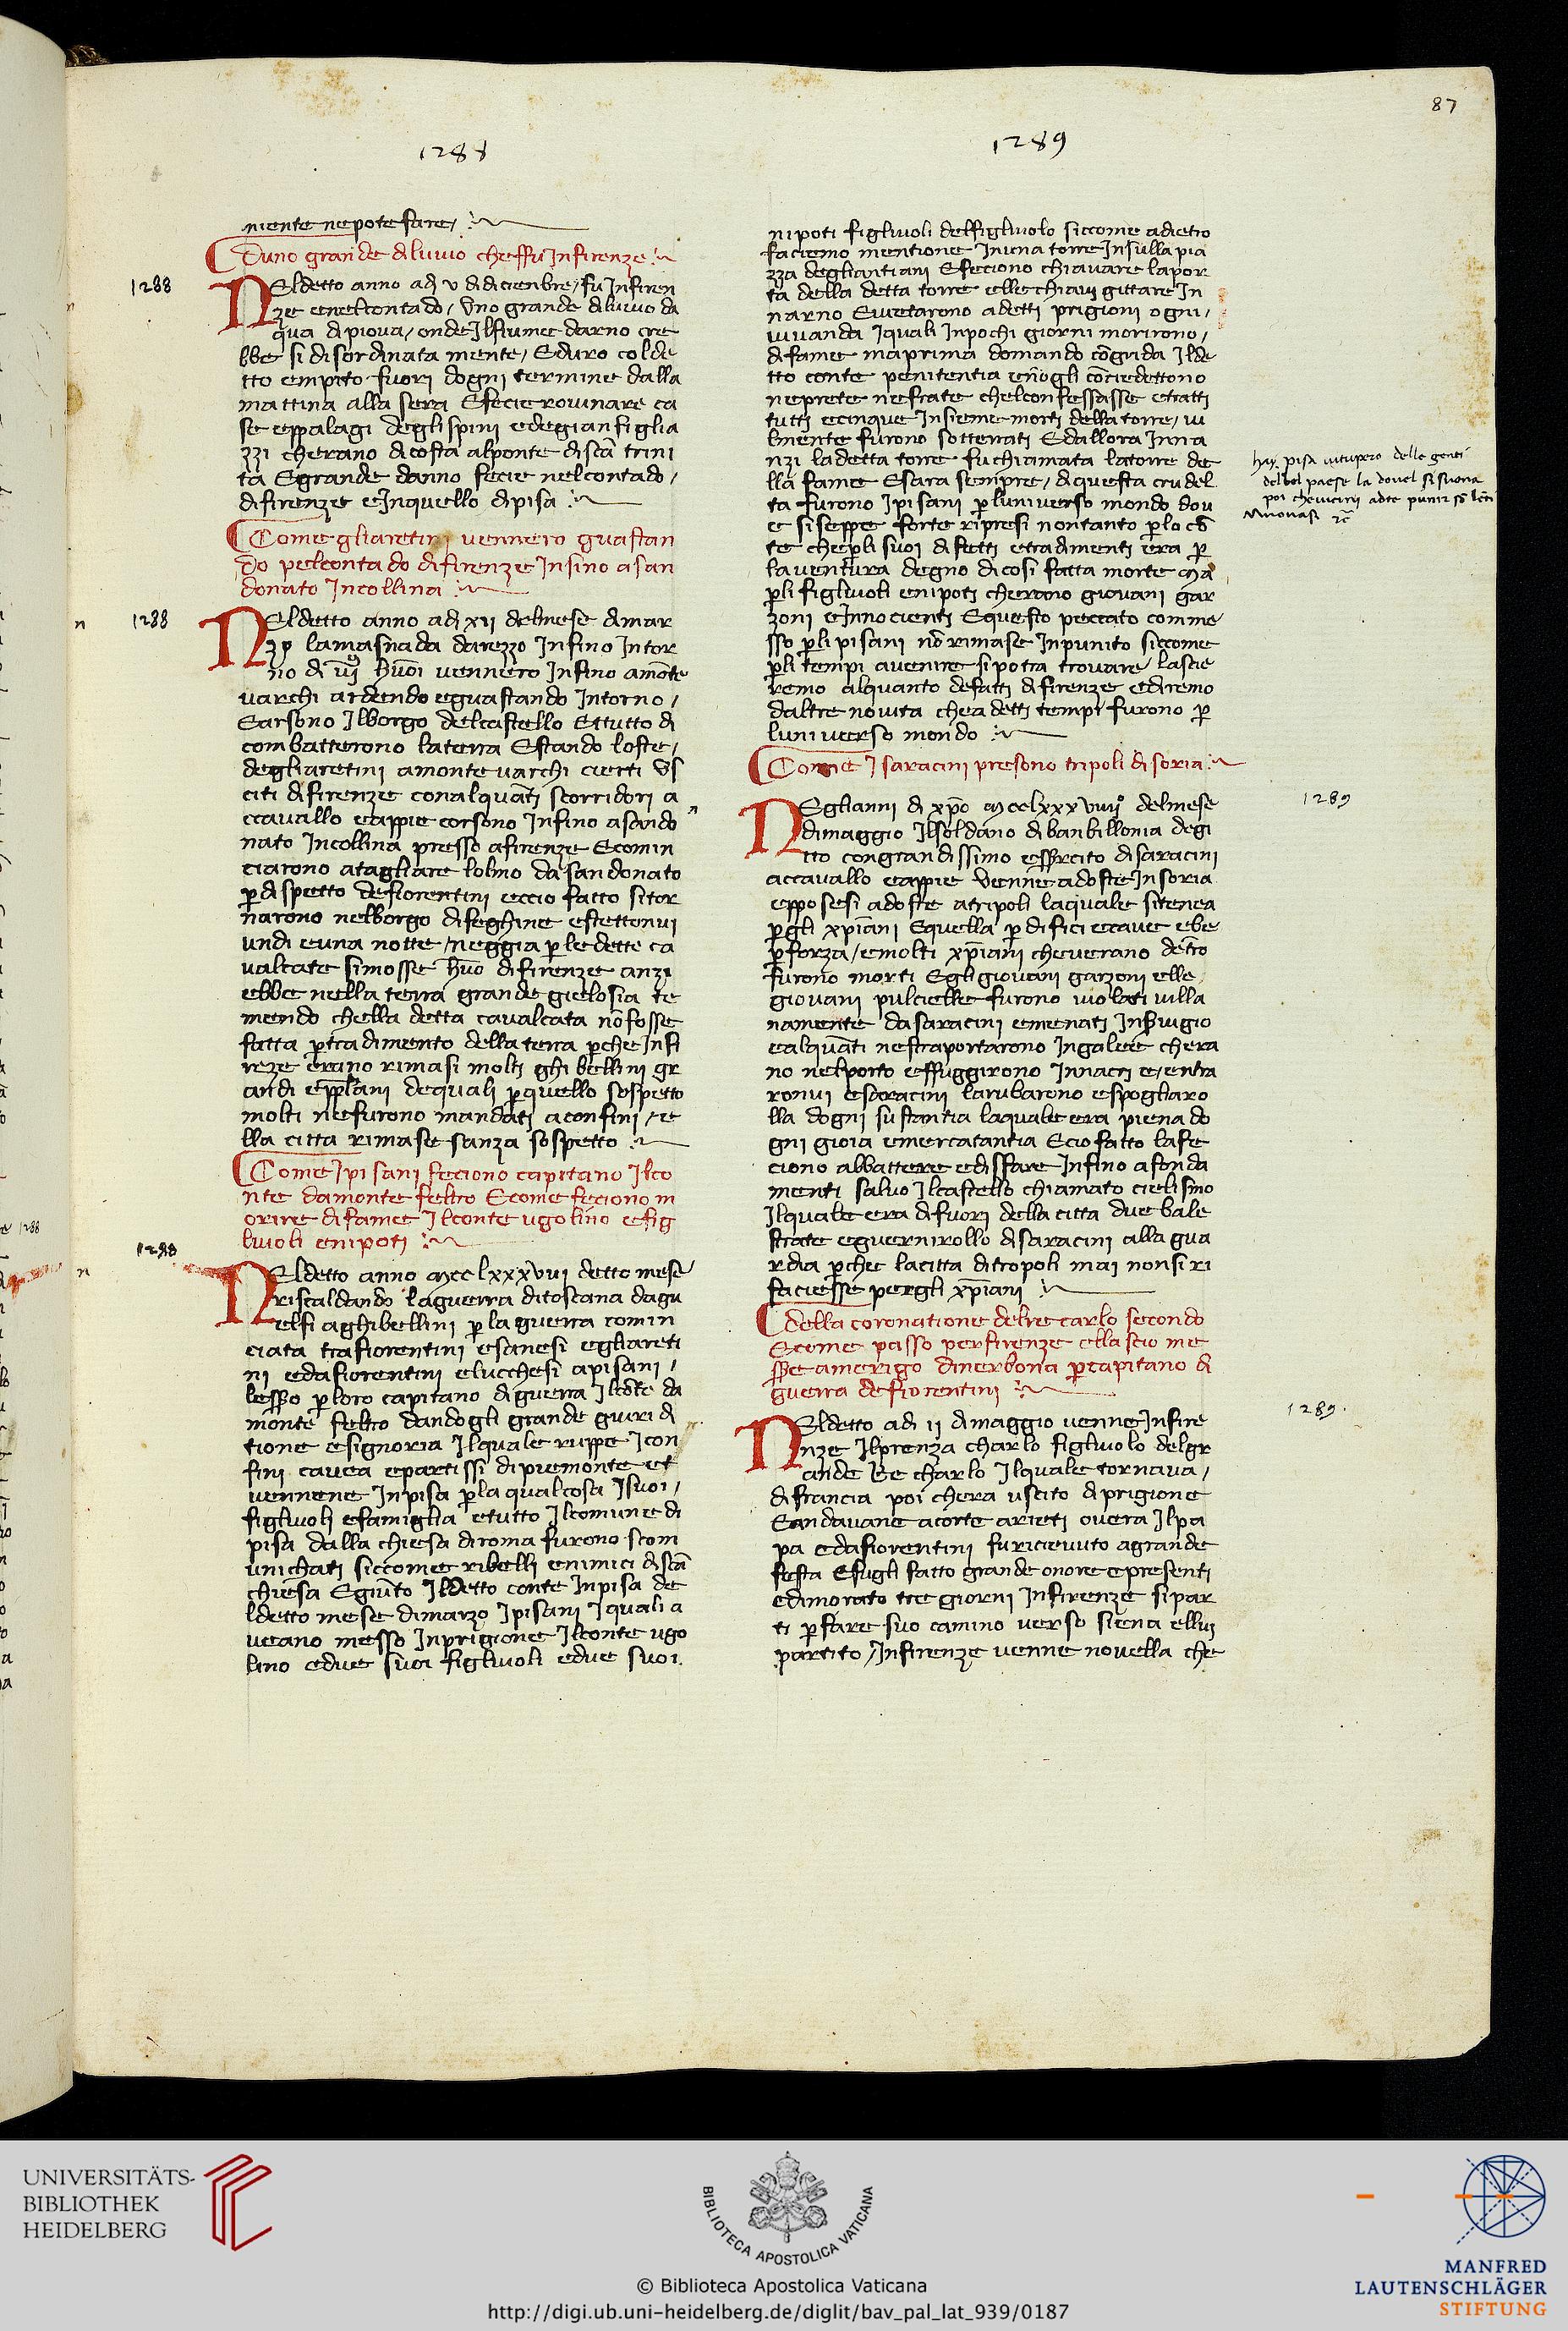 87
1288
niente nepote fare
Duno grande diluvio cheffu infirenze
1288
NEldetto anno adi v di dicienbre/ fu infiren
ze enelcontado/ Uno grande diluvio da
qua di piova/ onde ilfiume darno cre
bbe si disordinata mente/ Eduro colde
tto empito fuori dogni termine dalla
mattina alla sera Efecie rovinare ca
se eppalagi deglispini edegianfiglia
zzi cherano dicosta alponte discā trini
ta Egrande danno fecie nelcontado/
difirenze einquello dipisa
Come gliaretini vennero guastan
do pelcontado difirenze insino asan
donato incollina
n 1288
NEldetto anno adi xii delmese dimar
zo lamasnada darezzo infino intor
no di huoi vennero infino amōte
varchi ardendo eguastando intorno/
Earsono ilborgo delcastello Ettutto di
combatterono laterra Estando loste/
degliaretini amontevarchi cierti Us
citi difirenze conalquāti scorridori a
ccavallo eappie corsono infino asando
nato incollina presso afirenze Ecomin
ciarono atagliare lolmo dasandonato
p dispetto defiorentini eccio fatto sitor
narono nelborgo difeghine estettonvi
undi euna notte/ neggia p ledette ca
valcate simosse huō difirenze anzi
ebbe nella terra grande gielosia te
mendo chella detta cavalcata nō fosse
fatta p tradimento della terra p che infi
reze erano rimasi molti ghibellini gr
andi eppolani dequali p quello sospetto
molti nefurono mandati aconfini/ e
lla citta rimase sanza sospetto
Come ipisani feciono capitano ilco
nte damonte feltro Ecome feciono m
orire difame ilconte ugolino efig
livoli enipoti
1288
n
NEldetto anno mcclxxxviii detto mese
riscaldando laguerra ditoscana dagu
elfi aghibellini p la guerra comin
ciata trafiorentini esanesi egliareti
ni edafiorentini elucchesi apisani/
lesso p loro capitano diguerra ilcōte da
monte feltro dandogli grande giuridi
tione esignoria ilquale ruppe icon
fini cavea epartissi dipiemonte et
vennene inpisa p la qualcosa isuoi/
figlivoli efamiglia etutto ilcomune di
pisa dalla chiesa diroma furono scom
unichati siccome ribelli enimici discā
chiesa Egiūto ildetto conte inpisa de
ldetto mese dimarzo ipisani iquali a
veano messo inprigione ilconte ugo
lino edue suoi figlivoli edue suoi
1289
nipoti figlivoli delfiglivolo siccome adietro
faciemo mentione inuna torre insulla pia
zza deglianziani Efeciono chiavare lapor
ta della detta torre elle chiavi gittare in
narno Evietarono adetti prigioni ogni/
vivanda iquali inpochi giorni morirono/
difame maprima domando cō grida ilde
tto conte penitentia enōgli cōciedettono
neprete nefrate chelconfessasse etratti
tutti ecinque insieme morti della torre/ vi
lmente furono sotterrati Edallora inna
nzi ladetta torre fu chiamata latorre de
lla fame Esara sempre/ diquesta crudel
ta furono ipisani p luniverso mondo dov
e siseppe forte ripresi nontanto p lo cō
te chep li suoi difetti etradimenti era p
laventura degno dicosi fatta morte ma
p li figlivoli enipoti cherano giovani gar
zoni einnocienti Equesto peccato comme
sso p li pisani nō rimase inpunito siccome
p li tempi avenire sipotra trovare/ lascie
remo alquanto defatti difirenze ediremo
daltre novita chea detti tempi furono p
luniverso mondo
hay pisa vitupero delle genti
delbel paese la dovel si suona
poi che vicini adte punir sō lēti
muovasi
Come isaracini presono tripoli disoria
1289
NEglianni di xpō mcclxxxviiii delmese
dimaggio ilsoldano dibanbillonia degi
tto congrandissimo essercito disaracini
accavallo eappie venne adoste insoria
epposesi adoste atripoli laquale sitenea
p gli xpiani Equella p difici ecave ebe
p forza/ emolti xpiani cheverano dētro
furono morti Egligiovani garzoni elle
giovani pulcielle furono violati villa
namente dasaracini emenati inservigio
ealquāti nestraportarono ingalee chera
no nelporto effuggirono innacri e/ entra
ronvi esaracini larubarono espogliaro
lla dogni sustantia laquale era piena do
gni gioia emercatantia Ecio fatto lafe
ciono abbattere edisfare infino afonda
menti salvo ilcastello chiamato cielisimo
ilquale era difuori della citta due bale
strate eguernirollo disaracini alla gua
rdia p che lacitta ditropoli mai nonsiri
faciesse pergli xpiani
della coronatione delre carlo secondo
Ecome passo perfirenze ellascio me
sse amerigo dinerbona p capitano di
guerra defiorentini
1289
NEldetto adi ii dimaggio venne infire
nze ilprenza charlo figlivolo delgr
ande Re charlo ilquale tornava/
difrancia poi chera uscito diprigione
Eandavane acorte arieti overa ilpa
pa edafiorentini furicievuto agrande
festa Efugli fatto grande onore epresenti
edimorato tre giorni infirenze sipar
ti p fare suo camino verso siena ellui
partito/ infirenze venne novella che
UNIVERSITÄTS-
BIBLIOTHEK
HEIDELBERG
BIBLIOTECA APOSTOLICA VATICANA
© Biblioteca Apostolica Vaticana
http://digi.ub.uni-heidelberg.de/diglit/bav_pal_lat_939/0187
MANFRED
LAUTENSCHLÄGER
STIFTUNG